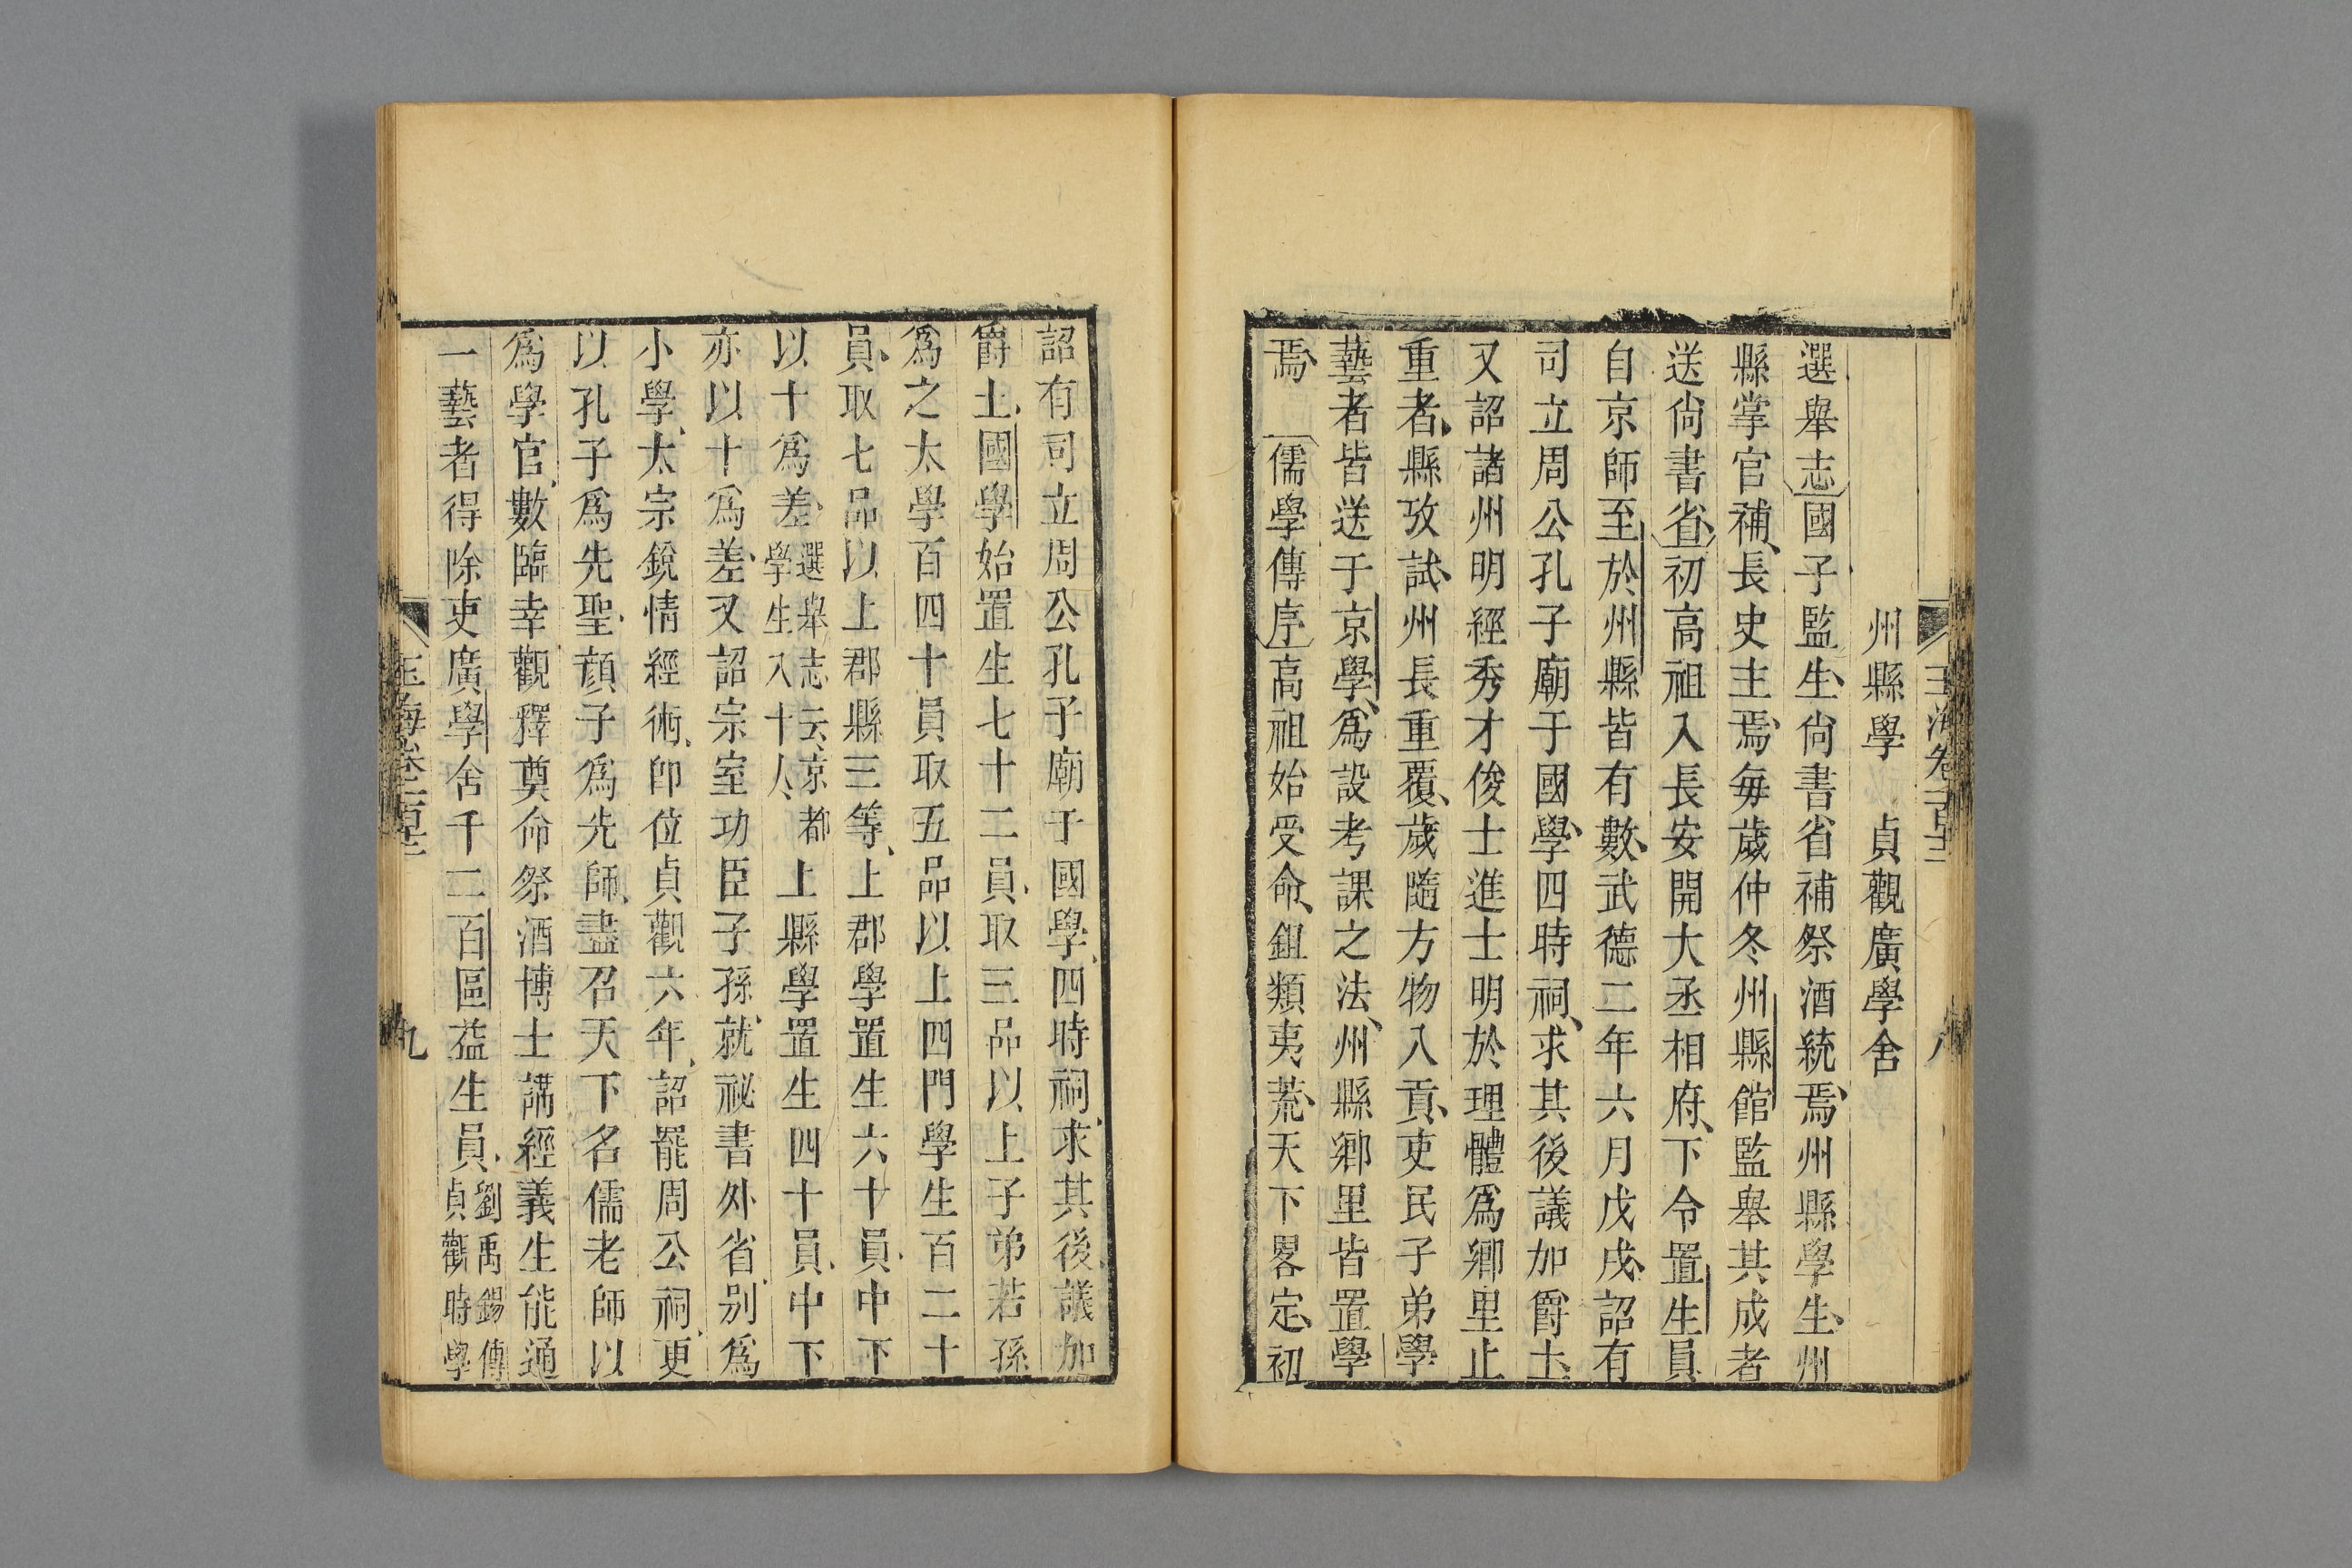 玉海卷一百十二 八
州縣學 貞觀廣學舍
選舉志國子監生尚書省補祭酒統焉州縣學生州
縣掌官補長史主焉每歲仲冬州縣館監舉其成者
送尚書省初高祖入長安開大丞相府下令置生員
自京師至於州縣皆有數武德二年六月戊戌詔有
司立周公孔子廟于國學四時祠求其後議加爵土
又詔諸州明經秀才俊士進士明於理體爲鄉里止
重者縣攷試州長重覆歲隨方物入貢吏民子弟學
藝者皆送于京學爲設考課之法州縣鄉里皆置學
焉 儒學傳序高祖始受命鉏類夷荒天下畧定初
詔有司立周公孔子廟于國學四時祠求其後議加
爵土國學始置生七十二員取三品以上子弟若孫
爲之太學百四十員取五品以上四門學生百二十
員取七品以上郡縣三等上郡學置生六十員中下
以十爲差選舉志云京都學生八十人上縣學置生四十員中下
亦以十爲差又詔宗室功臣子孫就祕書外省别爲
小學太宗銳情經術卽位貞觀六年詔罷周公祠更
以孔子爲先聖顔子爲先師盡召天下名儒老師以
爲學官數臨幸觀釋奠命祭酒博士講經義生能通
一藝者得除吏廣學舍千二百區益生員劉禹錫傳貞觀時學
玉海卷一百十二 九